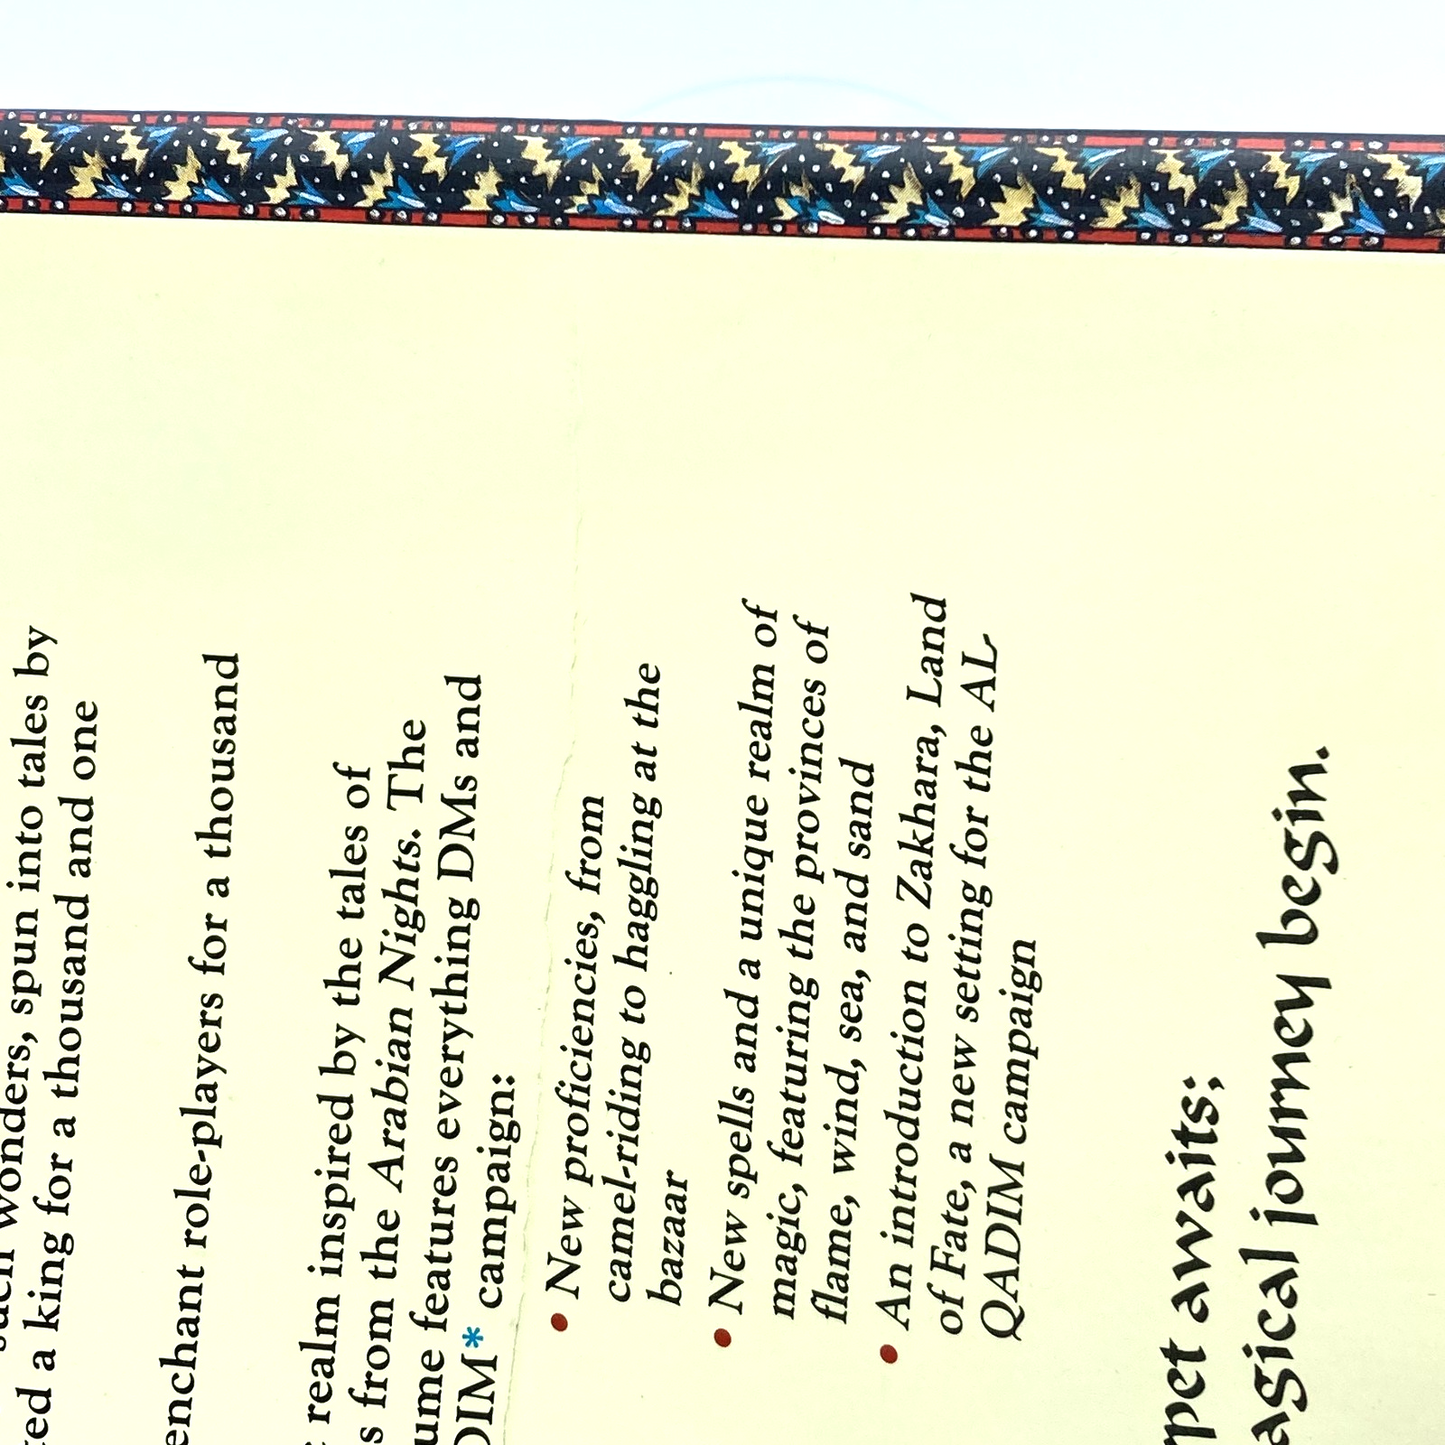 such wonders, spun into tales by
a king for a thousand and one
enchant role-players for a thousand
realm inspired by the tales of
from the Arabian Nights. The
features everything DMs and
* campaign:
• New proficiencies, from
camel-riding to haggling at the
bazaar
• New spells and a unique realm of
magic, featuring the provinces of
flame, wind, sea, and sand
• An introduction to Zakhara, Land
of Fate, a new setting for the AL-
QADIM campaign
awaits;
journey begin.